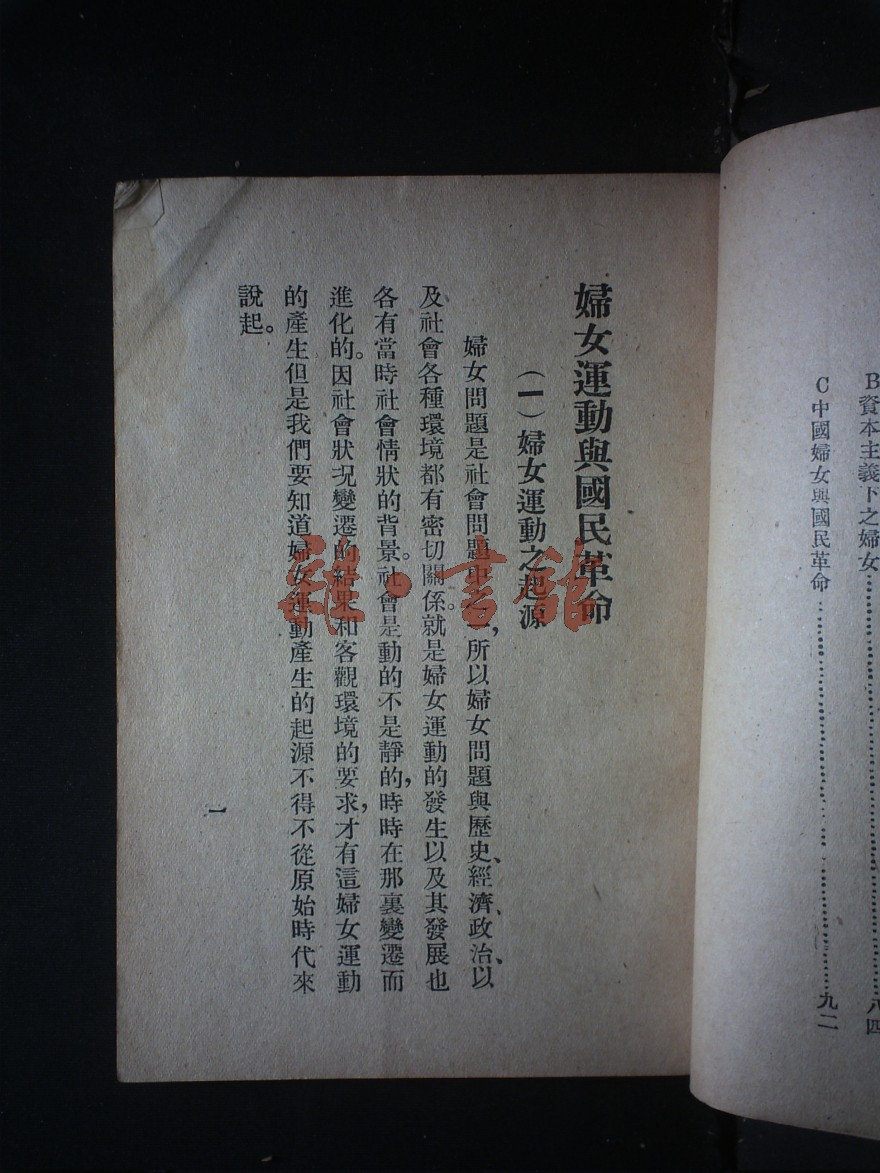 B資本主義下之婦女……………………八四
C中國婦女與國民革命……………………九二
婦女運動與國民革命
（一）婦女運動之起源
婦女問題是社會問題中之一，所以婦女問題與歷史、經濟、政治、以
及社會各種環境都有密切關係。就是婦女運動的發生以及其發展也
各有當時社會情狀的背景。社會是動的不是靜的，時時在那裏變遷而
進化的。因社會狀況變遷的結果和客觀環境的要求，才有這婦女運動
的產生但是我們要知道婦女運動產生的起源不得不從原始時代來
說起。
一
雜·書館